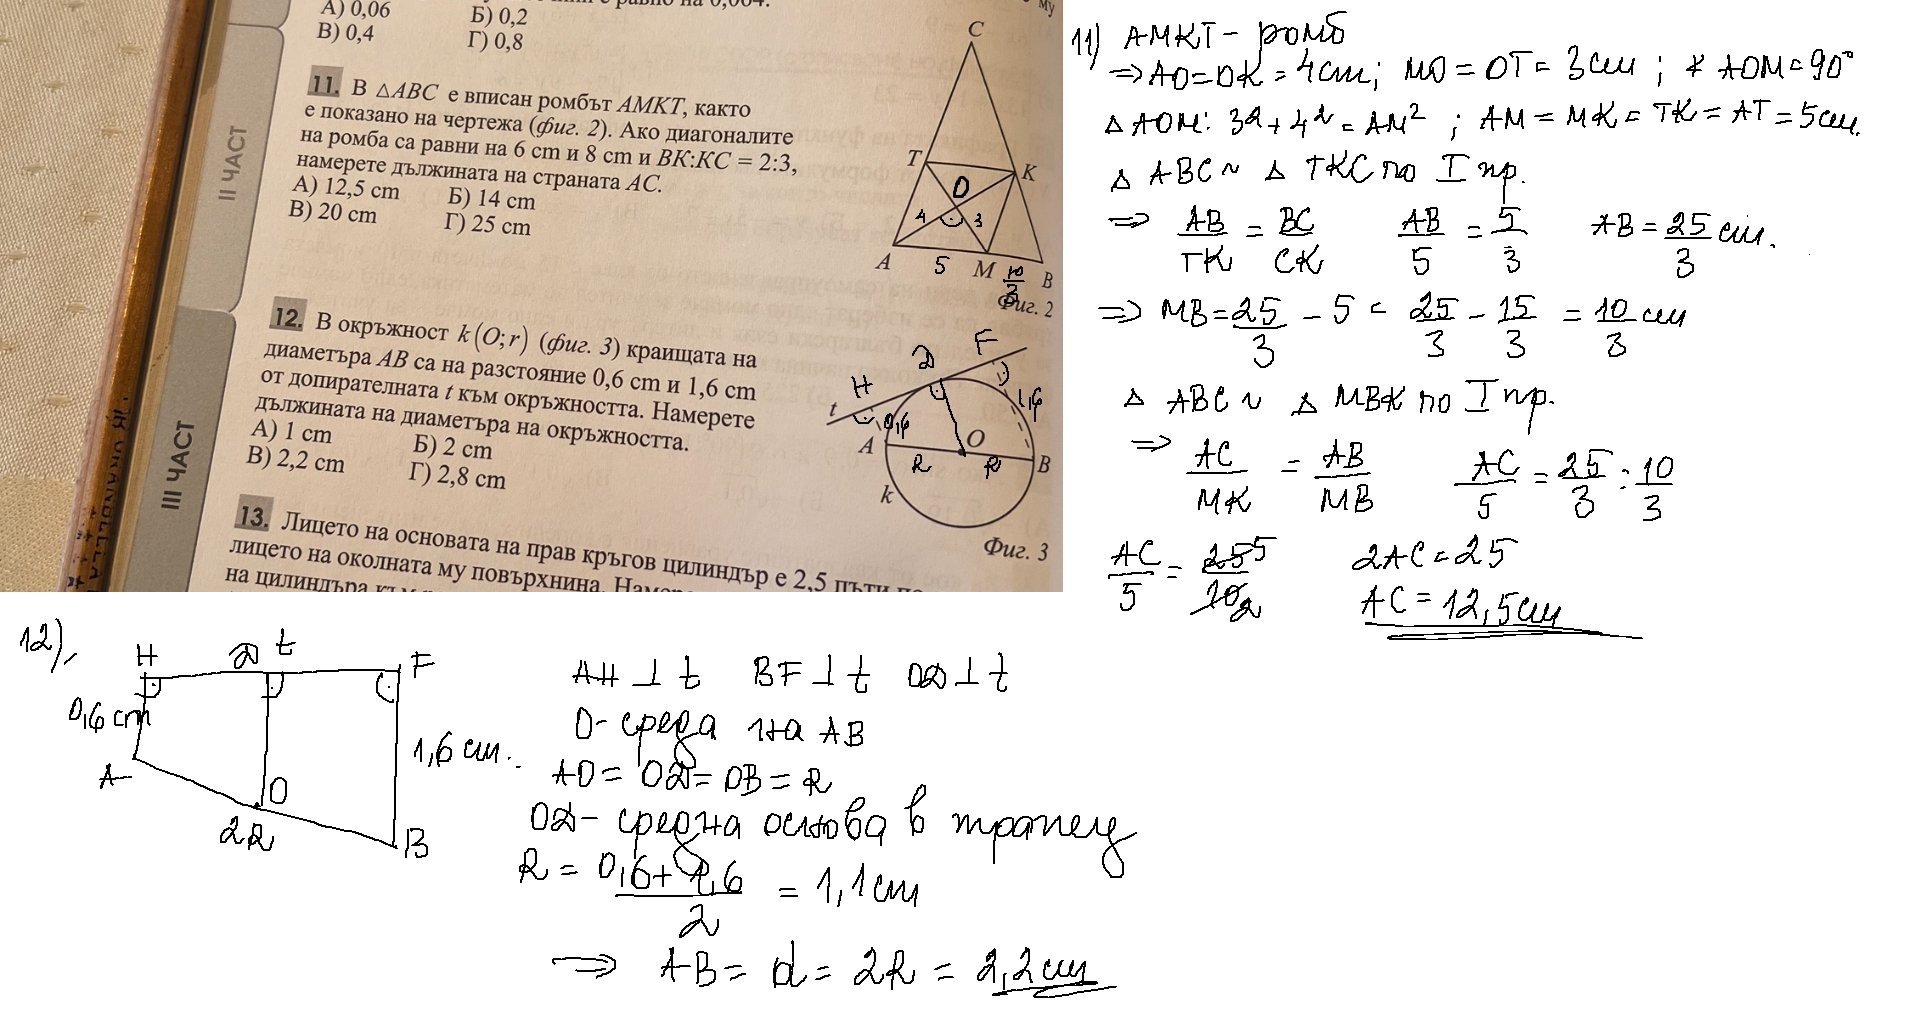 А) 0,06
Б) 0,2
В) 0,4
Г) 0,8
11. В △ABC е вписан ромбът AMKT, както
е показано на чертежа (фиг. 2). Ако диагоналите
на ромба са равни на 6 cm и 8 cm и BK:KC = 2:3,
намерете дължината на страната AC.
А) 12,5 cm
Б) 14 cm
В) 20 cm
Г) 25 cm
C
T
K
O
4
3
A
5
M
10/3
B
Фиг. 2
II ЧАСТ
12. В окръжност k(O;r) (фиг. 3) краищата на
диаметъра AB са на разстояние 0,6 cm и 1,6 cm
от допирателната t към окръжността. Намерете
дължината на диаметъра на окръжността.
А) 1 cm
Б) 2 cm
В) 2,2 cm
Г) 2,8 cm
F
D
H
t
1,6
0,6
A
O
R
R
B
k
Фиг. 3
III ЧАСТ
13. Лицето на основата на прав кръгов цилиндър е 2,5 пъти
лицето на околната му повърхнина.
на цилиндъра
11) AMKT - ромб
=> AO = OK = 4cm; MO = OT = 3cm; ∢ AOM = 90°
△ AOM: 3² + 4² = AM² ; AM = MK = TK = AT = 5cm.
△ ABC ~ △ TKC по I пр.
=> AB/TK = BC/CK AB/5 = 5/3 AB = 25/3 cm.
=> MB = 25/3 - 5 = 25/3 - 15/3 = 10/3 cm
△ ABC ~ △ MBK по I пр.
=> AC/MK = AB/MB AC/5 = 25/3 : 10/3
AC/5 = 25 5/10 2 2AC = 25
AC = 12,5cm
12),
H D t F
0,6 cm
1,6 cm.
A
O
2R
B
AH ⊥ t BF ⊥ t OD ⊥ t
O - среда на AB
AO = OD = OB = R
OD - средна основа в трапец
R = 0,6 + 1,6/2 = 1,1cm
=> AB = d = 2R = 2,2cm